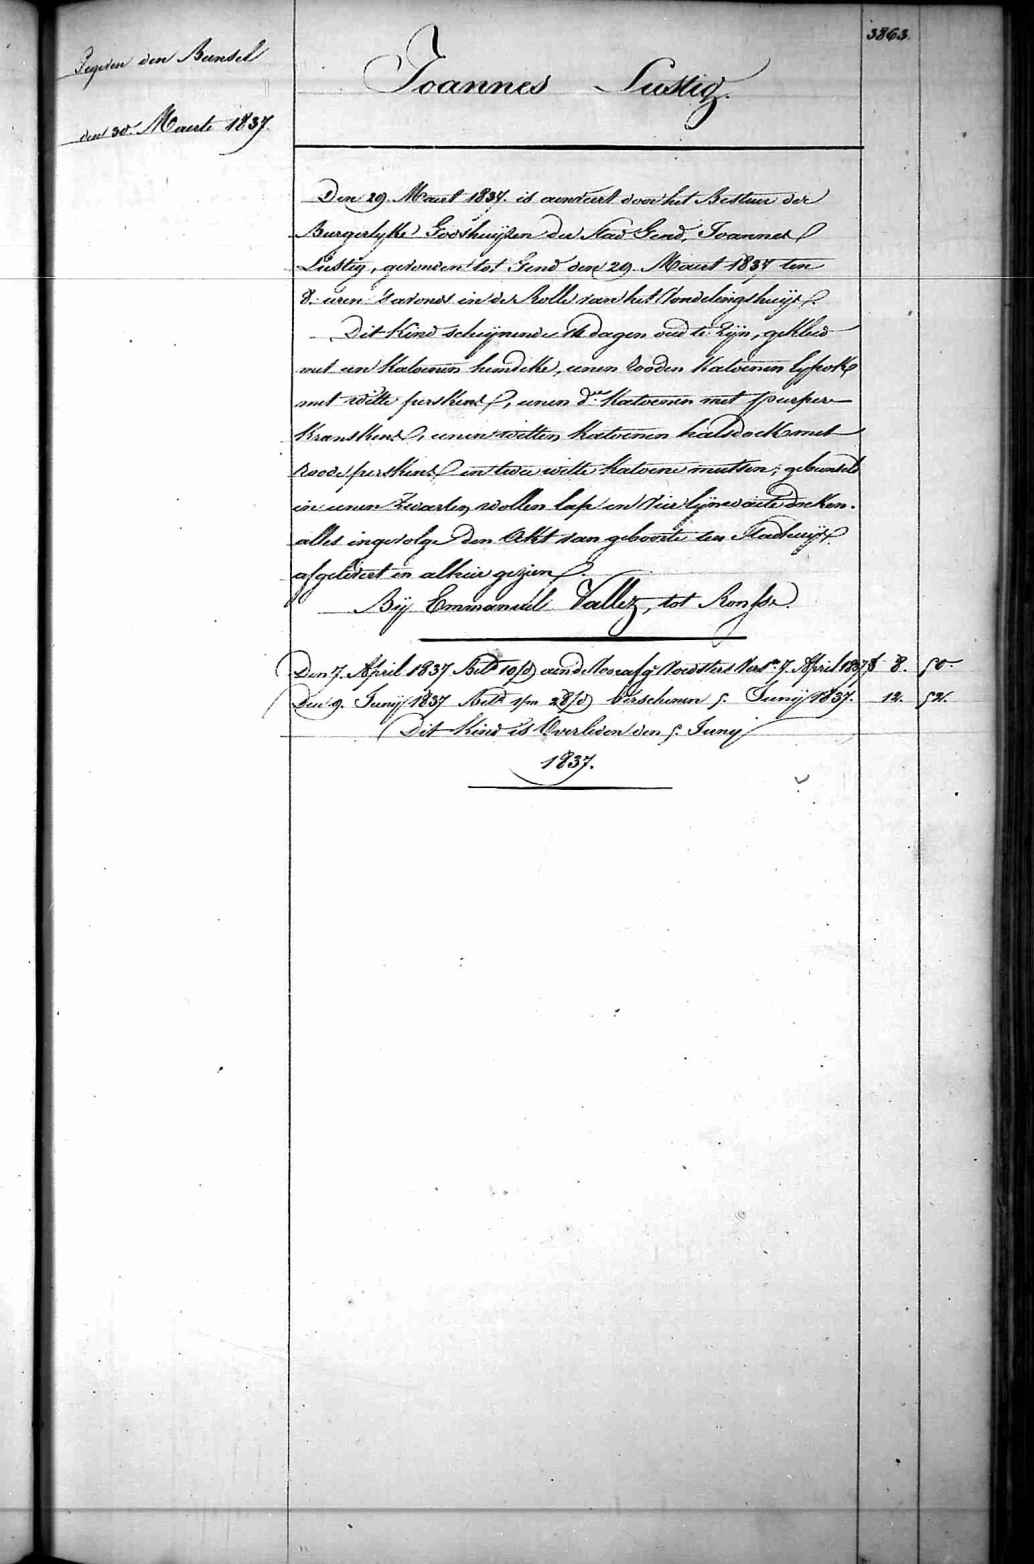 3863.
Gegeven den Bunsel
den 30. Maerte 1837.
Joannes Lustig.
Den 29. Maert 1837. is aenveert door het Bestuer der
Burgerlyke Godshuijzen der Stad Gend, Joannes
Lustig, gevonden tot Gend den 29. Maert 1837 ten
8. uren savonds in de Rolle van het Vondelingshuijs.
Dit Kind schijnende 14 dagen oud te zijn, gekleed
met een Katoenen hemdeke, eenen rooden Katoenen lyfrok
met witte perskens, eenen do. Katoenen met purper
Kranskens, eenen witten Katoenen halsdoek met
roode perskens en twee witte Katoene mutsen; gebunseld
in eenen zwarten wollen lap en vier lijnwaete doeken.
alles ingevolge den Akt van geboorte ten Stadhuijse
afgelevert en alhier gezien.
Bij Emmanuel Vallez, tot Ronsse.
Den 7. April 1837 Betd. 19/d aen de Voedsters Vers. 7. April 1837 f 8. 50
Den 9. Junij 1837 Betd. 28/d Verschenen 5. Junij 1837. 12. 52.
Dit Kind is Overleden den 5. Junij
1837.